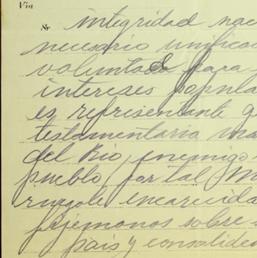 Via
Sr integridad nac
necesario unifica
voluntad para
intereses popula
es representante q
testamentaria ma
del Rio, enemigo
pueblo, por tal M
ruegole encarecida
fijemonos sobre
pais y consolide